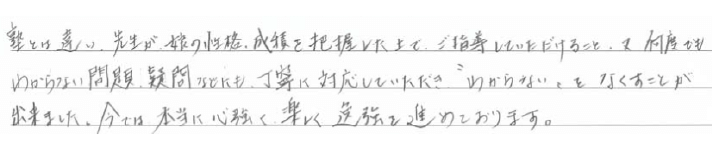 塾とは違い、先生が、娘の性格、成績を把握した上で、ご指導していただけること、又何度でも
わからない問題、疑問などにも、丁寧に対応していただき、“わからない„を なくすことが
出来ました。今では本当に心強く、楽しく勉強を進めております。